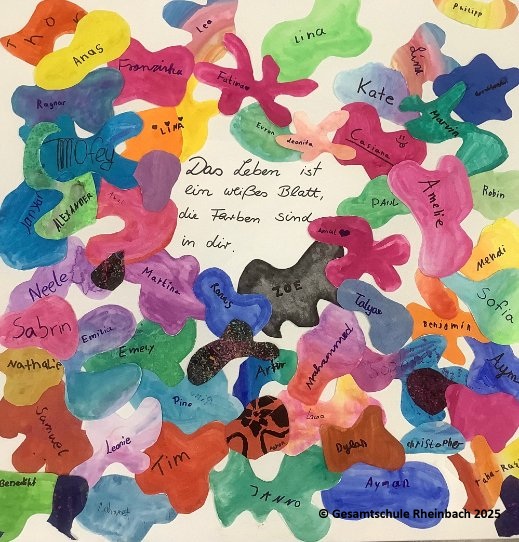 Thor
Anas
Leo
Lina
Philipp
Franziska
Fatima
Ragnar
Kate
Marvin
LINA
Evran
Leonita
Motey
Das Leben ist
ein weißes Blatt,
die Farben sind
in dir.
ALEXANDER
PAUL
Amelie
Robin
Mehdi
Neele
Martina
Ranas
ZOE
Talya
Sofia
Benjamin
Sabrin
Emilia
Emely
Mohammed
Nathalie
Artur
Aym
Pina
Samuel
Leonie
Tim
Dylan
Christopher
Benedikt
JANNO
Ayman
Taha-
© Gesamtschule Rheinbach 2025